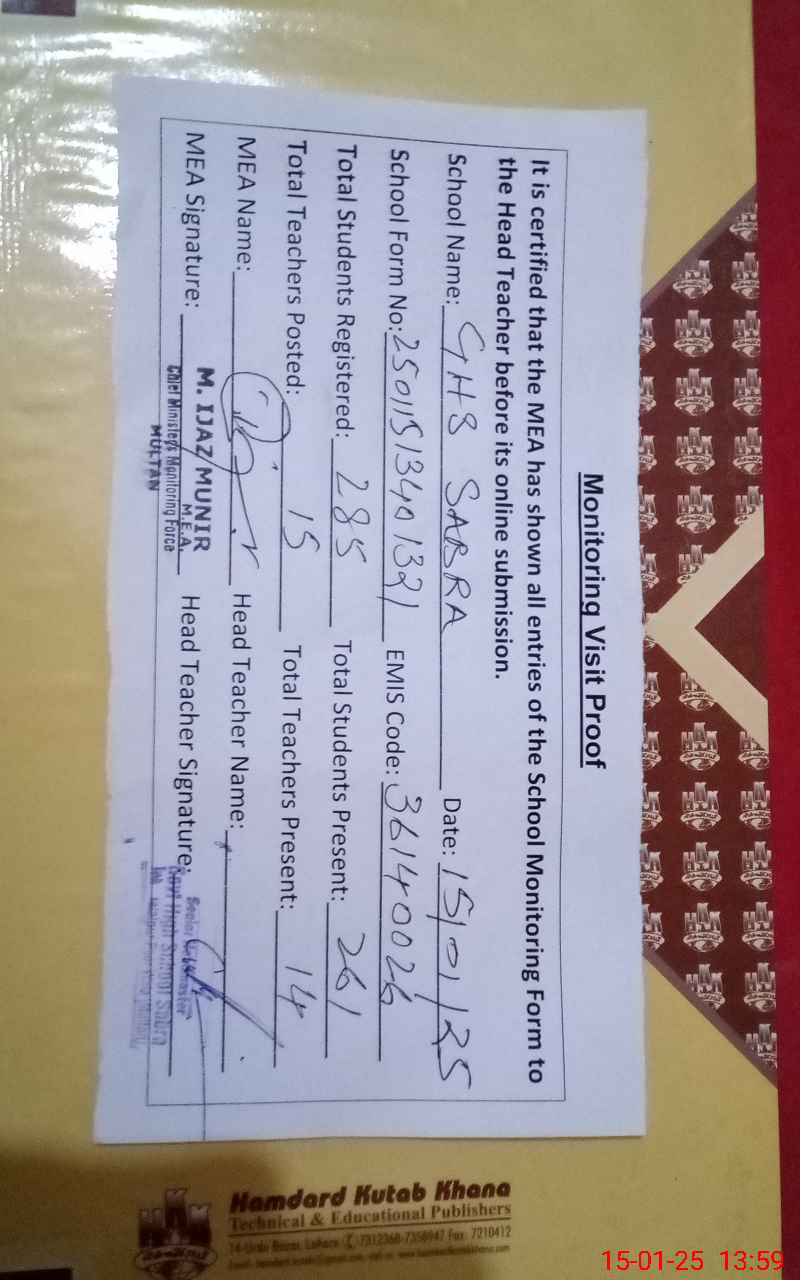 Monitoring Visit Proof
It is certified that the MEA has shown all entries of the School Monitoring Form to
the Head Teacher before its online submission.
School Name: GHS SABRA Date: 15/01/25
School Form No: 25011513401321 EMIS Code: 36140026
Total Students Registered: 285 Total Students Present: 261
Total Teachers Posted: 15 Total Teachers Present: 14
MEA Name: Head Teacher Name:
MEA Signature: Head Teacher Signature:
M. IJAZ MUNIR
M.E.A.
Chief Minister's Monitoring Force
MULTAN
Senior Headmaster
Govt High School Sabra
Hamdard Kutab Khana
Technical & Educational Publishers
14-Urdu Bazar, Lahore 7312368-7358947 Fax: 7210412
15-01-25 13:59